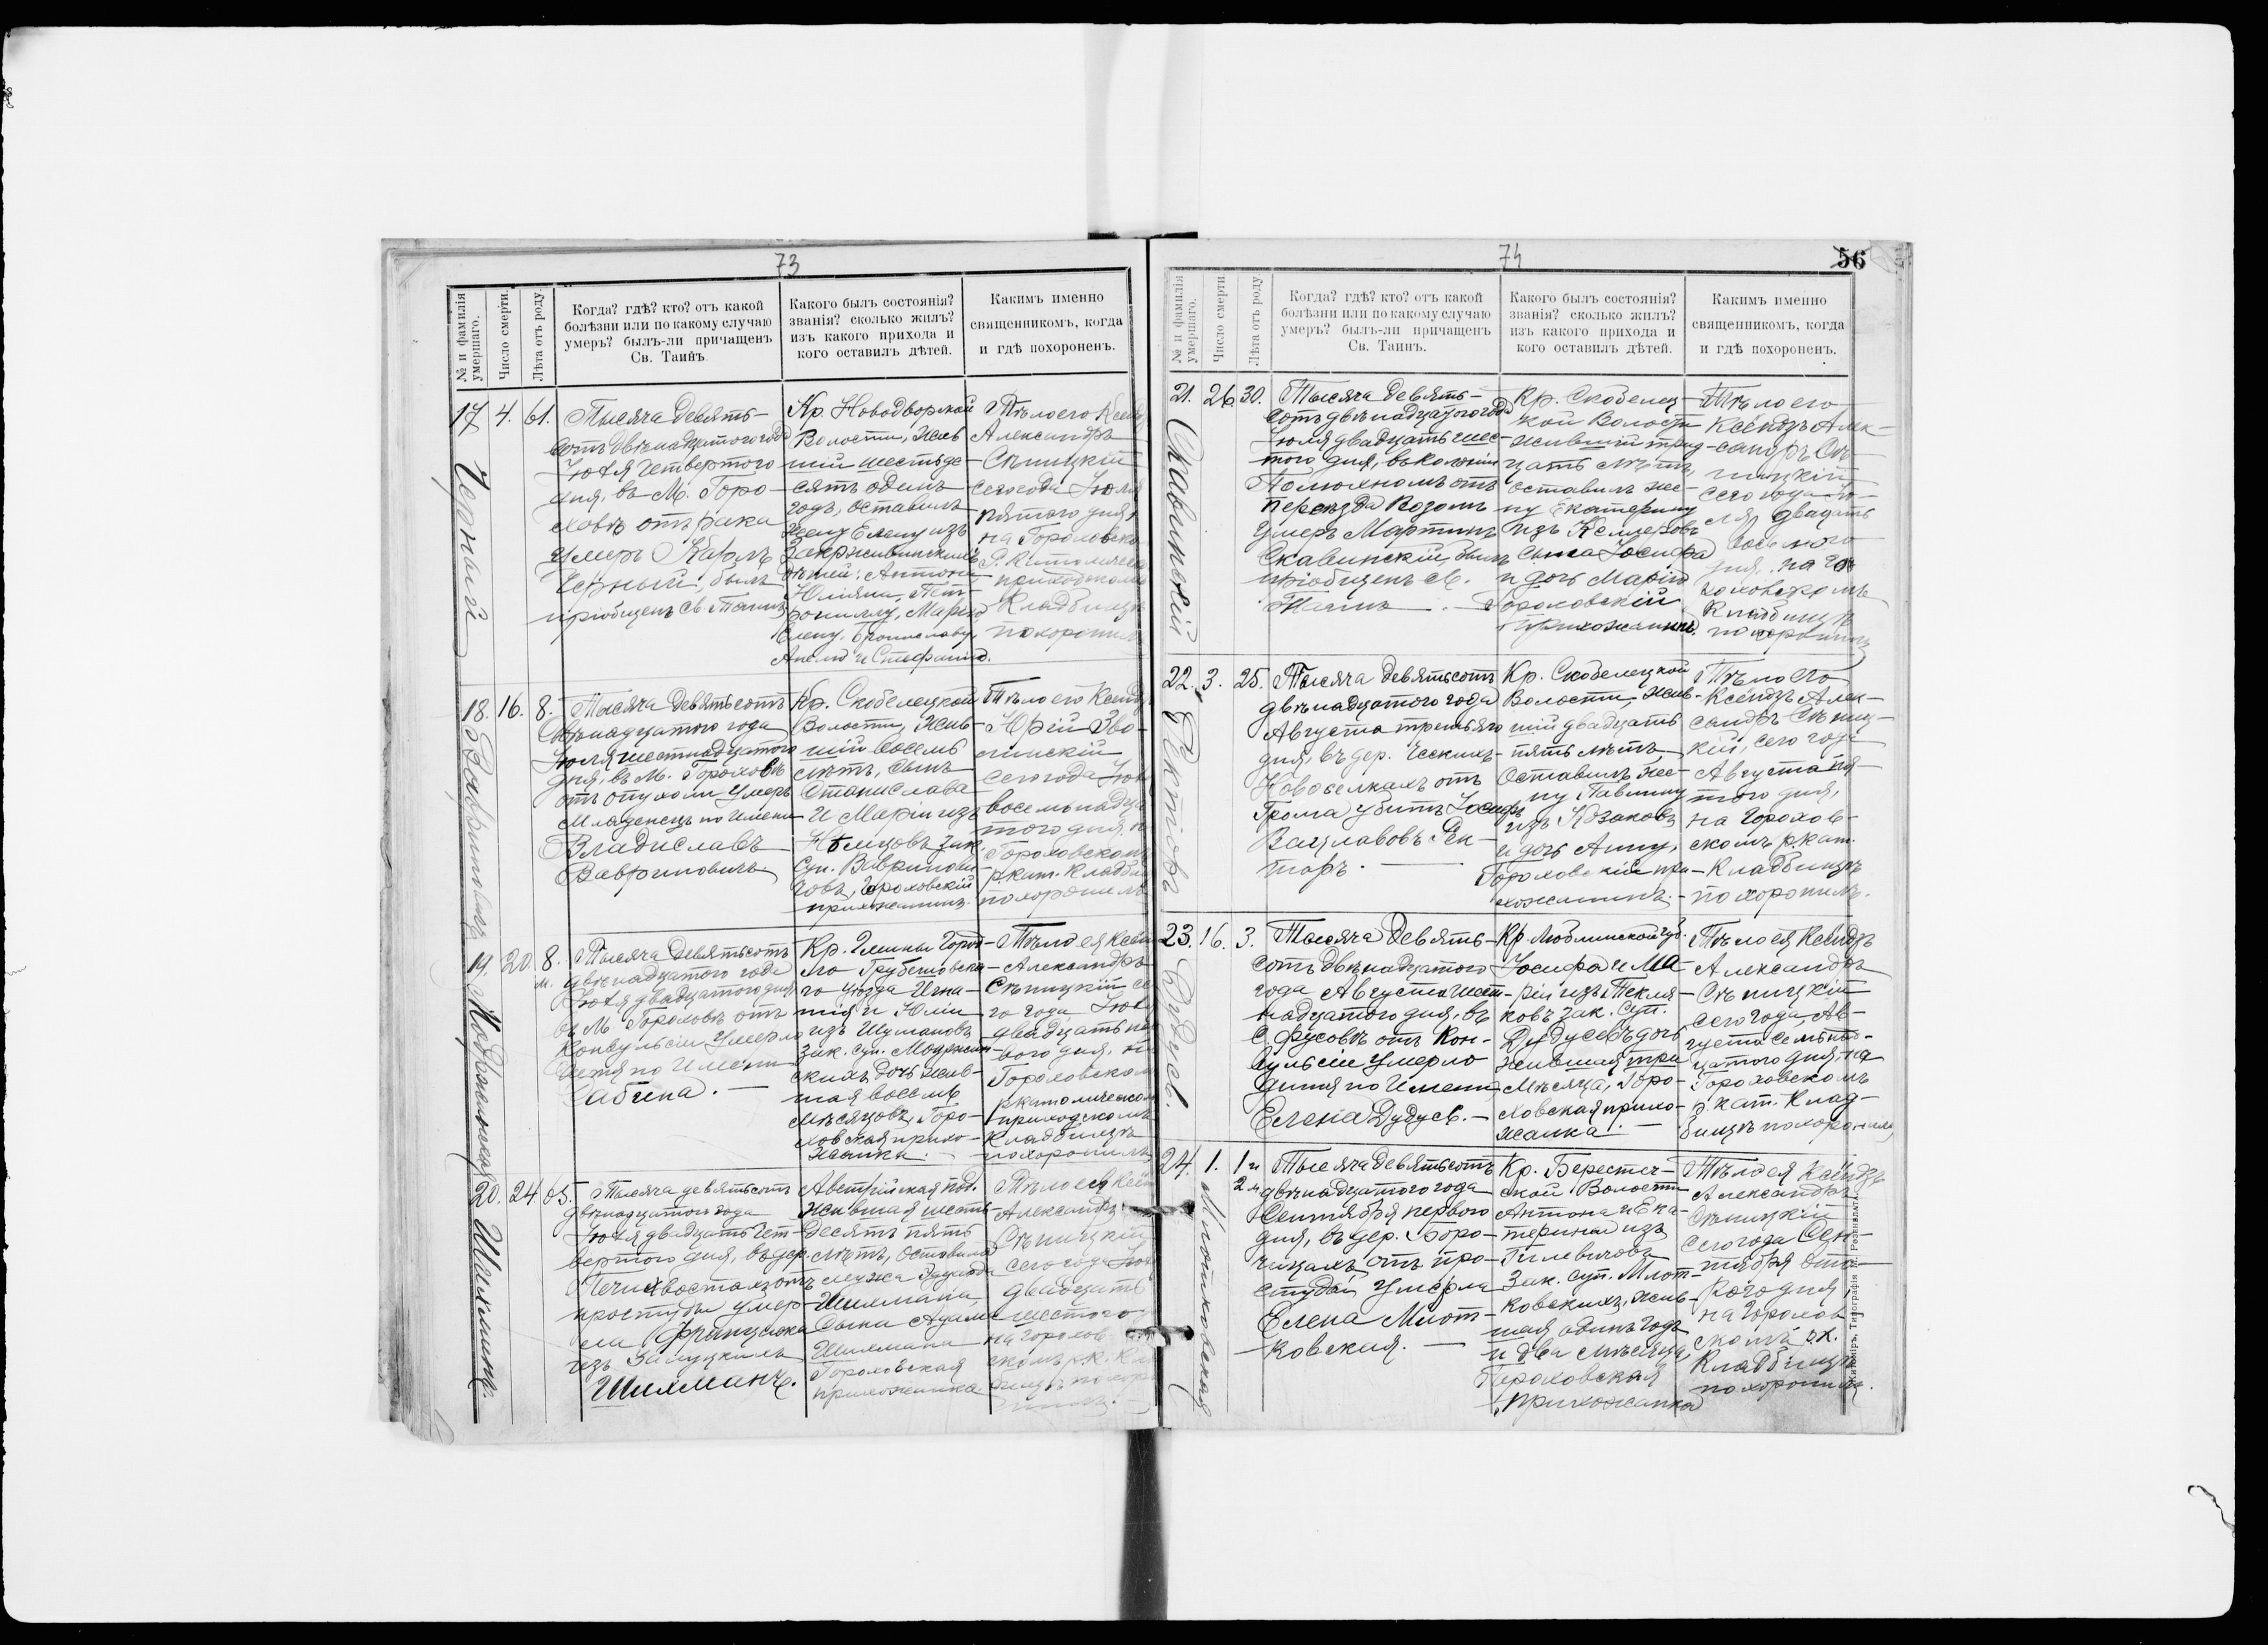 73
№ и фамилія умершаго.
Число смерти.
Лѣта отъ роду.
Когда? гдѣ? кто? отъ какой
болѣзни или по какому случаю
умеръ? былъ-ли причащенъ
Св. Таинъ.
Какого былъ состоянія?
званія? сколько жилъ?
изъ какого прихода и
кого оставилъ дѣтей.
Какимъ именно
священникомъ, когда
и гдѣ похороненъ.
17
Черный
4.
61.
Тысяча девять-
сотъ двѣнадцатого года
Іюля четвертого
дня, въ М. Горо-
ховѣ отъ рака
умеръ Карлъ
Черный; былъ
пріобщенъ Св Таинъ
Кр. Новодворской
Волости, жив
шій шестьде-
сятъ одинъ
годъ, оставилъ
жену Елену изъ
дѣтей: Антона
Юліяна, Пет-
рониллу, Марію
Елену, Брониславу,
Анелю и Стефанію.
Тѣло его Ксендз
Александръ
Сѣницкій
сего года Іюля
пятого дня,
на Гороховско
приходском
Кладбищѣ
похоронилъ
18.
Вавриновичъ
16.
8.
Тысяча девятьсотъ
двѣнадцатого года
Іюля шестнадцатого
дня, въ М. Гороховѣ
отъ опухоли умеръ
Младенецъ по имени
Владиславъ
Вавриновичъ
Кр. Скобелецкой
Волости, жив-
шій восемь
лѣтъ, сынъ
Станислава
и Маріи изъ
Нѣмцовъ зак.
Суп. Вавринови-
човъ, Гороховскій
прихожанинъ.
Тѣло его Ксендз
Юрій Зво-
линскій
сего года Іюл
восемьнадца
того дня, н
Гороховском
р.кат. Кладби
похоронилъ
19.
20.
8.
м.
Тысяча девятьсотъ
двѣнадцатого года
Іюля двадцатого дня
въ М Гороховѣ отъ
Конвульсіи умерло
дитя по имени
Сабина. —
Кр. Гмины Город-
ло Грубешовска-
го уѣзда Игна-
тія и Юліи
изъ Шумановъ
Зак. Суп.
скихъ дочь жив-
шая восемь
мѣсяцовъ, Горо-
ховская прихо-
жанка. —
Тѣло ея Ксен
Александръ
Сѣницкій се
го года Іюл
двадцать пер
вого дня, н
Гороховском
р.католическом
приходскомъ
Кладбищѣ
похоронилъ
20.
Шихманъ.
24
65.
Тысяча девятьсотъ
двѣнадцатого года
Іюля двадцать чет-
вертого дня, въ дер.
Печихвостахъ отъ
простуды умер-
ла Францишка
изъ
Шихманъ.
Австрійская под.
жившая шесть
десятъ пять
лѣтъ, оставила
мужа Эдуарда
Шихмана,
Сына Адама
Шихмана
Гороховская
прихожанка
Тѣло ея Ксен
Александръ
Сѣницкій
сего года Іюл
двадцать
шестого
на Горохов
скомъ р.к. Кл
бищѣ похоро
нилъ.
74
56
№ и фамилія умершаго.
Число смерти
Лѣта отъ роду
Когда? гдѣ? кто? отъ какой
болѣзни или по какому случаю
умеръ? былъ-ли причащенъ
Св. Таинъ.
Какого былъ состоянія?
званія? сколько жилъ?
изъ какого прихода и
кого оставилъ дѣтей.
Какимъ именно
священникомъ, когда
и гдѣ похороненъ.
21.
Скавинскій
26
30.
Тысяча девять-
сотъ двѣнадцатого года
Іюля двадцать шес-
того дня, въ колоніи
отъ
переѣзда Возомъ
умеръ Мартинъ
Скавинскій, былъ
пріобщенъ Св.
Таинъ —
Кр. Скобелец-
кой Волости
жившій трид-
цать лѣтъ,
оставилъ же-
ну Екатерину
изъ
сына Іосифа
и дочь Марію
Гороховскій
прихожанинъ.
Тѣло его
Ксендзъ Алек-
сандръ Сѣ-
ницкій
сего года Ію-
ля двадцать
восьмого
дня, на Го
роховскомъ
Кладбищѣ
похоронилъ
22.
3.
25.
Тысяча девятьсотъ
двѣнадцатого года
Августа третьяго
дня, въ дер. Чешскихъ-
Новоселкахъ отъ
Грома убитъ Іосифъ
Вацлавовъ Рек-
торъ. —
Кр. Скобелецкой
Волости, жив-
шій двадцать
пять лѣтъ,
Оставилъ же-
ну Павлину
изъ Козаковъ
и дочь Анну,
Гороховскій при-
хожанинъ.
Тѣло его
Ксендзъ Алек-
сандръ Сѣниц-
кій, сего года
Августа пя-
того дня,
на Горохов-
скомъ р.кат.
Кладбищѣ
похоронилъ.
23.
Дудусь.
16.
3.
Тысяча девять-
сотъ двѣнадцатого
года Августа шест-
надцатого дня, въ
С. Фусовѣ отъ Кон-
вульсіи умерло
дитя по имени
Елена Дудусь. —
Кр. Люблинской губ.
Іосифа и Ма-
ріи изъ Текля-
ковъ зак. Суп.
Дудусевъ дочь
жившая три
мѣсяца, Горо-
ховская прихо-
жанка. —
Тѣло ея Ксендзъ
Александръ
Сѣницкій
сего года, Ав-
густа семьнад-
цатого дня, на
Гороховскомъ
р. кат. Клад-
бищѣ похоронилъ
24.
Млотковская
1.
1 и
2 м
Тысяча девятьсотъ
двѣнадцатого года
Сентября первого
дня, въ дер. Боро-
чицахъ отъ про-
студы умерла
Елена Млот-
ковская. —
Кр. Берестеч-
ской Волости
Антона и Ека-
терины изъ
Гилевичовъ
Зак. Суп. Млот-
ковскихъ, жив-
шая одинъ годъ
и два мѣсяца,
Гороховская
прихожанка
Тѣло ея Ксендзъ
Александръ
Сѣницкій
Сего года Сен-
тября вто-
рого дня,
на Горохов
скомъ р.к.
Кладбищѣ
похоронилъ.